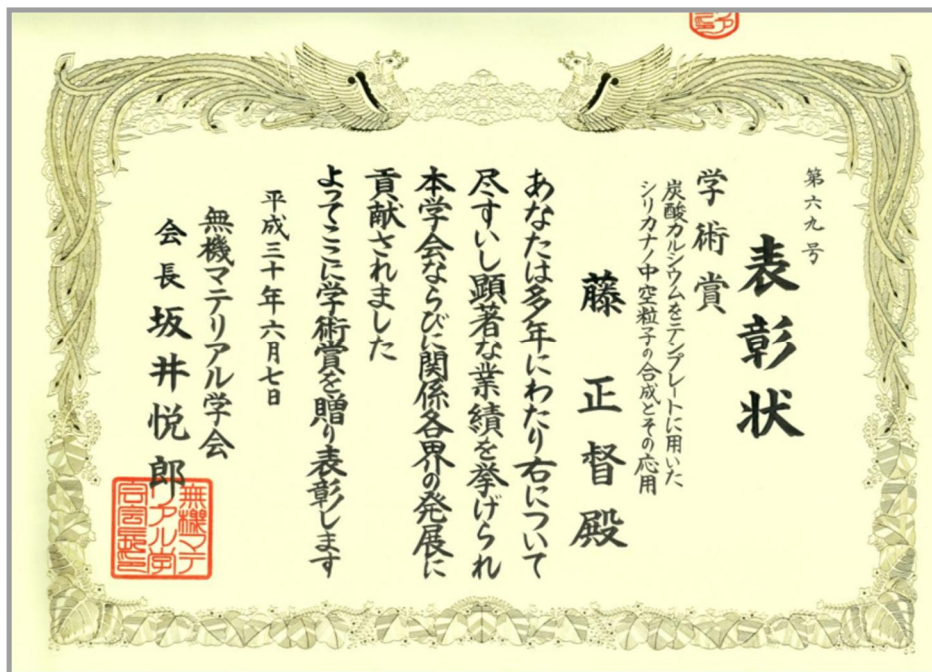 第六九号
表彰状
学術賞
炭酸カルシウムをテンプレートに用いた
シリカナノ中空粒子の合成とその応用
藤正督殿
あなたは多年にわたり右について
尽すいし顕著な業績を挙げられ
本学会ならびに関係各界の発展に
貢献されました
よってここに学術賞を贈り表彰します
平成三十年六月七日
無機マテリアル学会
会長坂井悦郎
無機マテ
リアル学
会会長印